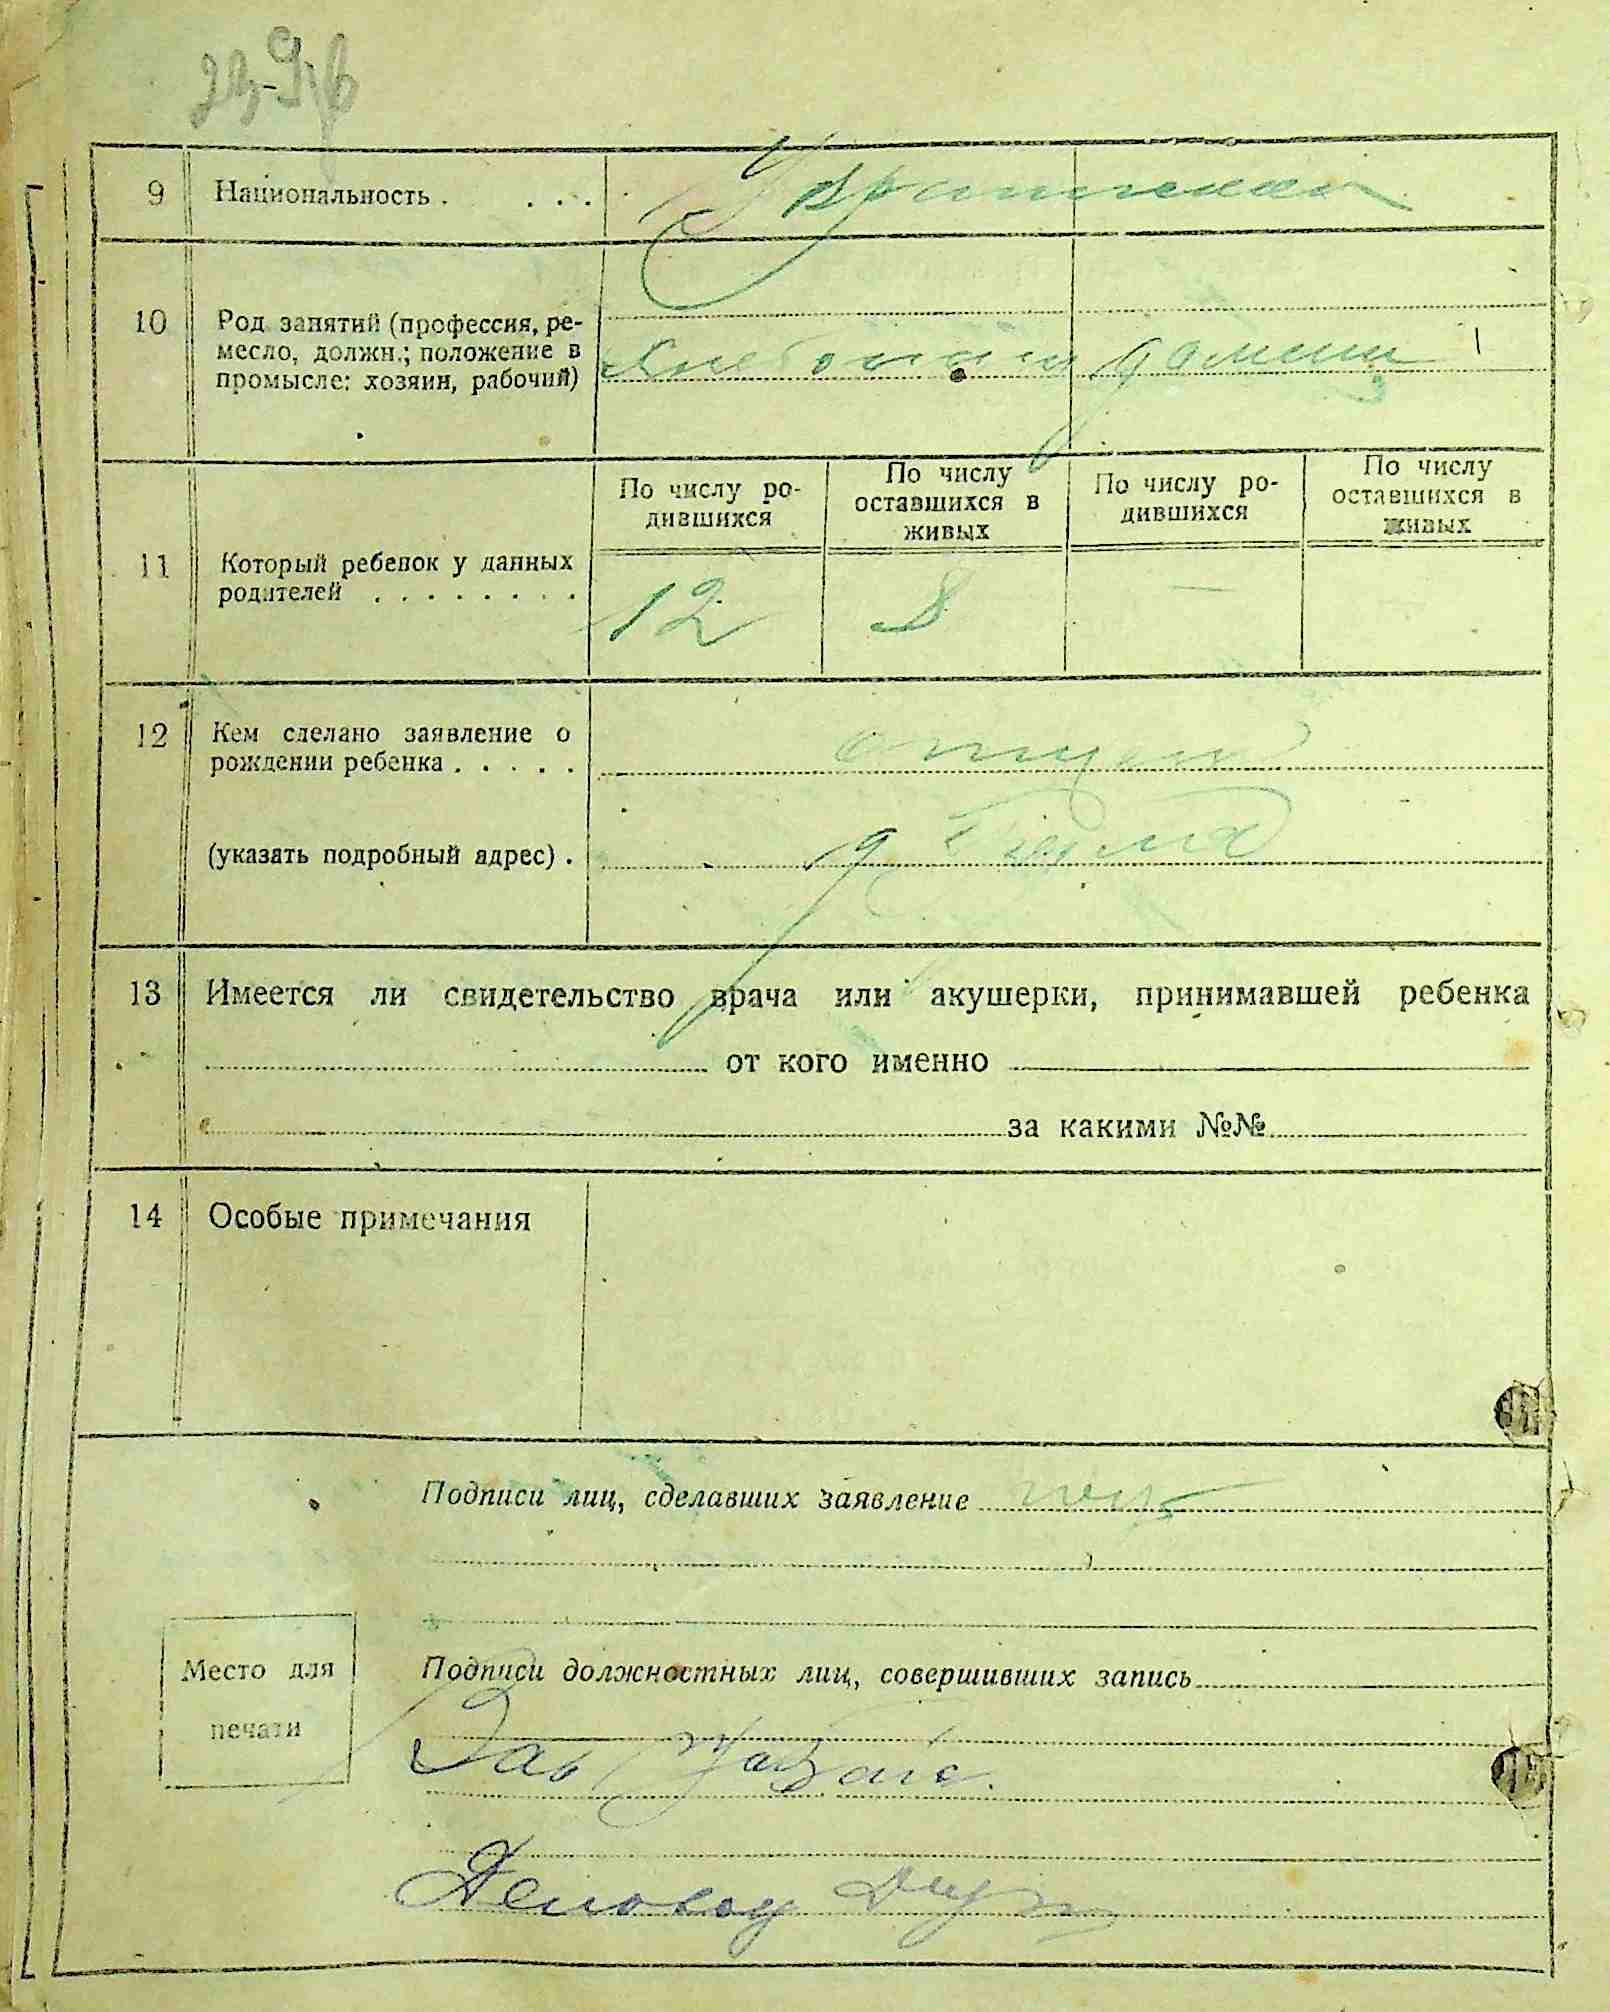 9 Национальность . . . . Украинская
10 Род занятий (профессия, ре-
месло, должн.; положение в
промысле: хозяин, рабочий)
домаш
По числу ро-
дившихся
По числу
оставшихся в
живых
По числу ро-
дившихся
По числу
оставшихся в
живых
11 Который ребенок у данных
родителей . . . . . . . .
12 8 —
12 Кем сделано заявление о
рождении ребенка . . . . .
отцем
(указать подробный адрес) .
13 Имеется ли свидетельство врача или акушерки, принимавшей ребенка
от кого именно
за какими №№
14 Особые примечания
Подписи лиц, сделавших заявление
Место для
печати
Подписи должностных лиц, совершивших запись
Зав
Деловод